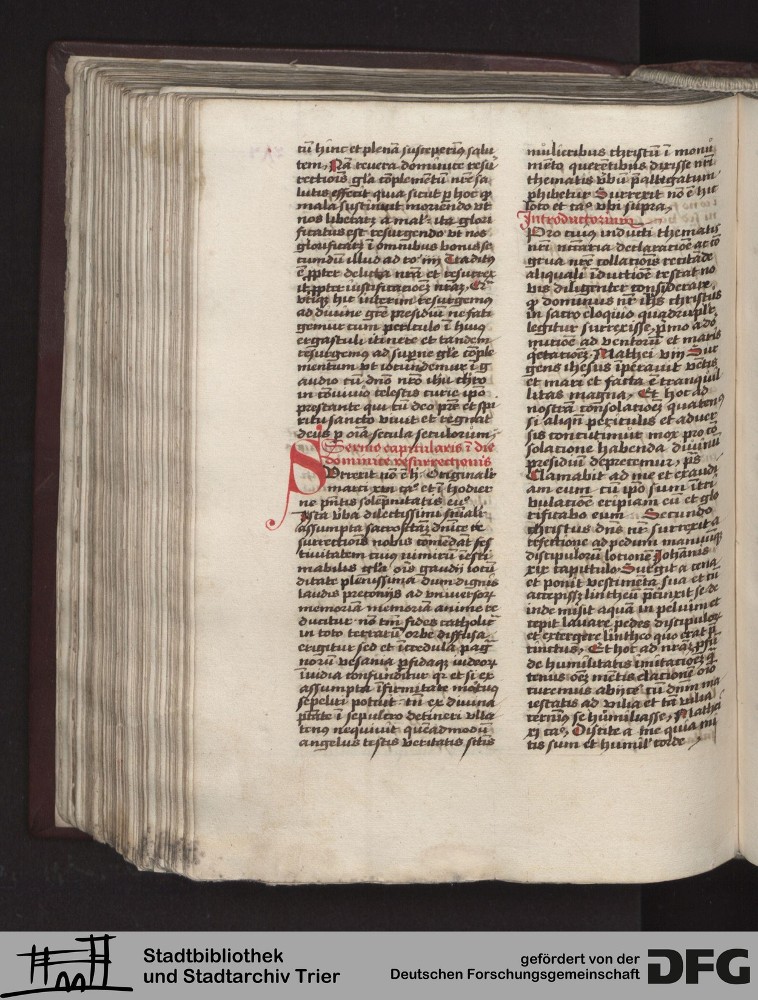 tū hinc et plenā susceperim9 salu
tem, Nā revera dominice resur
rectiōis gl̄a cōplemētū nr̄e sa
lutis effecit quia sicut ꝑ hoc ꝙ
mala sustinuit moriendo vt
nos libetaret a mal' ita glori
ficatus est resurgendo vt nos
glorificaret ī omnibus bonis se
cundū illud ad ro iiii Traditus
ē ꝓpter delicta nr̄a et resurrex
it ꝓpter iustificatiōez nr̄az, Er
utiqꝫ hic interim resurgemus
ad divine gr̄e presidiū ne fati
gemur cum periculo ī huius
ergastuli itinere et tandem
resurgemus ad superne gl̄e cōple
mentum vt iocundemur ī g
audio cū dn̄o nr̄o ihū chr̄o
in cōvivio celestis curie ipō
prestante qui cū deo pr̄e et spi
ritu sancto vivit et regnat
deus ꝑ oīa secula seculorum,
Sermo capitularis ī die
dominice resurrectionis
Surrexit nō ē h' Originalr̄
marci xvi ca° et ī hodier
ne pn̄tis solēpnitatis eū°
Ista v̄ba dilectissimi fr̄ualr̄
assumpta sacrosctāz dn̄ice re
surrectiōis nobis cōmēdāt fes
tivitatem cuius nimirū inesti
mabilis gl̄a oīs gaudii iocū
ditate plenissima dum dignis
laudis preconiis ad universorꝫ
memoriā memoriā anime re
ducitur nō tm̄ fides catholic̄
in toto terrarū orbe diffusa
erigitur sed et īcredula pag
norū vesania ꝑfidaqꝫ iudeorꝫ
īvidia confunditur qr et si ex
assumpta īfirmitate mortuus
sepeliri potuit tn̄ ex divina
ptāte ī sepulcro detineri ulla
tenus nequivit quēadmodū
angelus testis veritatis scilis
mulieribus christū ī monu
mēto querētibus dixisse nr̄i
thematis v̄bū p̄allegatum
ꝑhibetur Surrexit nō ē hic
loco et ca° v̄bi supra,
Introductorium
Pro cuius inducti thematis
nr̄i nr̄aria declaratiōe ac cō
grua nr̄e collatiōis recitāde
aliquali īductiōe restat no
bis diligenter considerare
ꝙ dominus nr̄ ih̄s christus
in sacro eloquio quadruplr̄
legitur surrexisse, pͥmo ad o
nitiōē ad ventorū et maris
q̄etatiōez, Mathei viii Sur
gens ihesus īperavit vētis
et mari et facta ē tranquil
litas magna, Et hoc ad
nostrā consolatiōez quatenus
si aliqn̄ periculis et adver
sis concutimur mox pro cō
solatione habenda divinū
presidiū deprecemur, ps
Clamabit ad me et exaudi
am eum cū ip̄o sum ī tri
bulatiōe eripiam eū et glo
rificabo eum Secundo
christus dn̄s nr̄ surrexit a
refectione ad pedum manuūqꝫ
discipulorū lotionē Johānis
xix capitulo Surgit a cena
et ponit vestimēta sua et cū
accepiss lintheū p̄cinxit se de
inde misit aquā in pelvim et
cepit lavare pedes discipulorꝫ
et extergere lintheo quo erat p̄
cinctus, Et hoc ad nr̄az ꝓfū
de humilitatis imitatiōez q̄
tenus oēz mētis elatiōnē oīo
curemus abiͥce cū dn̄m ma
iestatis ad vilia et tā vilia
cernimus se humiliasse, Mathei
xi ca°, Discite a me quia mi
tis sum et humil' corde
Stadtbibliothek
und Stadtarchiv Trier
gefördert von der
Deutschen Forschungsgemeinschaft
DFG